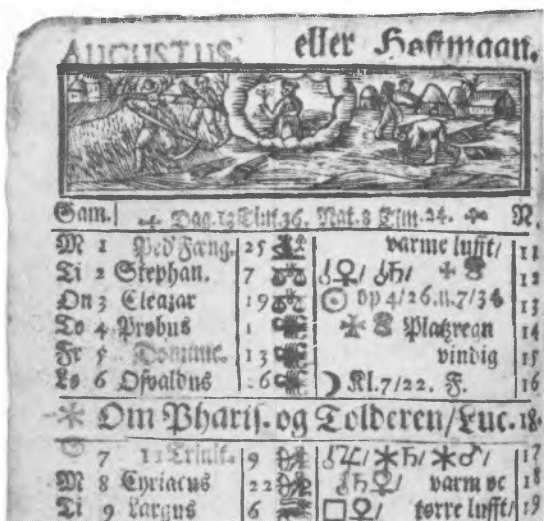 AUGUSTUS. eller Høstmaan.
Gam. Dag. 15 Tim. 36. Nat. 8 Tim. 24. N.
M 1 Ped Fæng. 25 varme lufft/ 11
Ti 2 Stephan. 7 ☌♀/ ☌♄/ 12
On 3 Eleazar 19 ☉ Op 4/26. n. 7/34 13
To 4 Probus 1 Platzregn 14
Fr 5 13 vindig 15
Lø 6 Osvaldus 26 ☽ Kl. 7/22. F. 16
Om Pharis. og Tolderen/ Luc. 18.
7 11 Trinit. 9 ☌♃/ ⚹♄/ ⚹♂/ 17
M 8 Cyriacus 22 varm oc 18
Ti 9 Largus 6 □♀/ tørre lufft/ 19